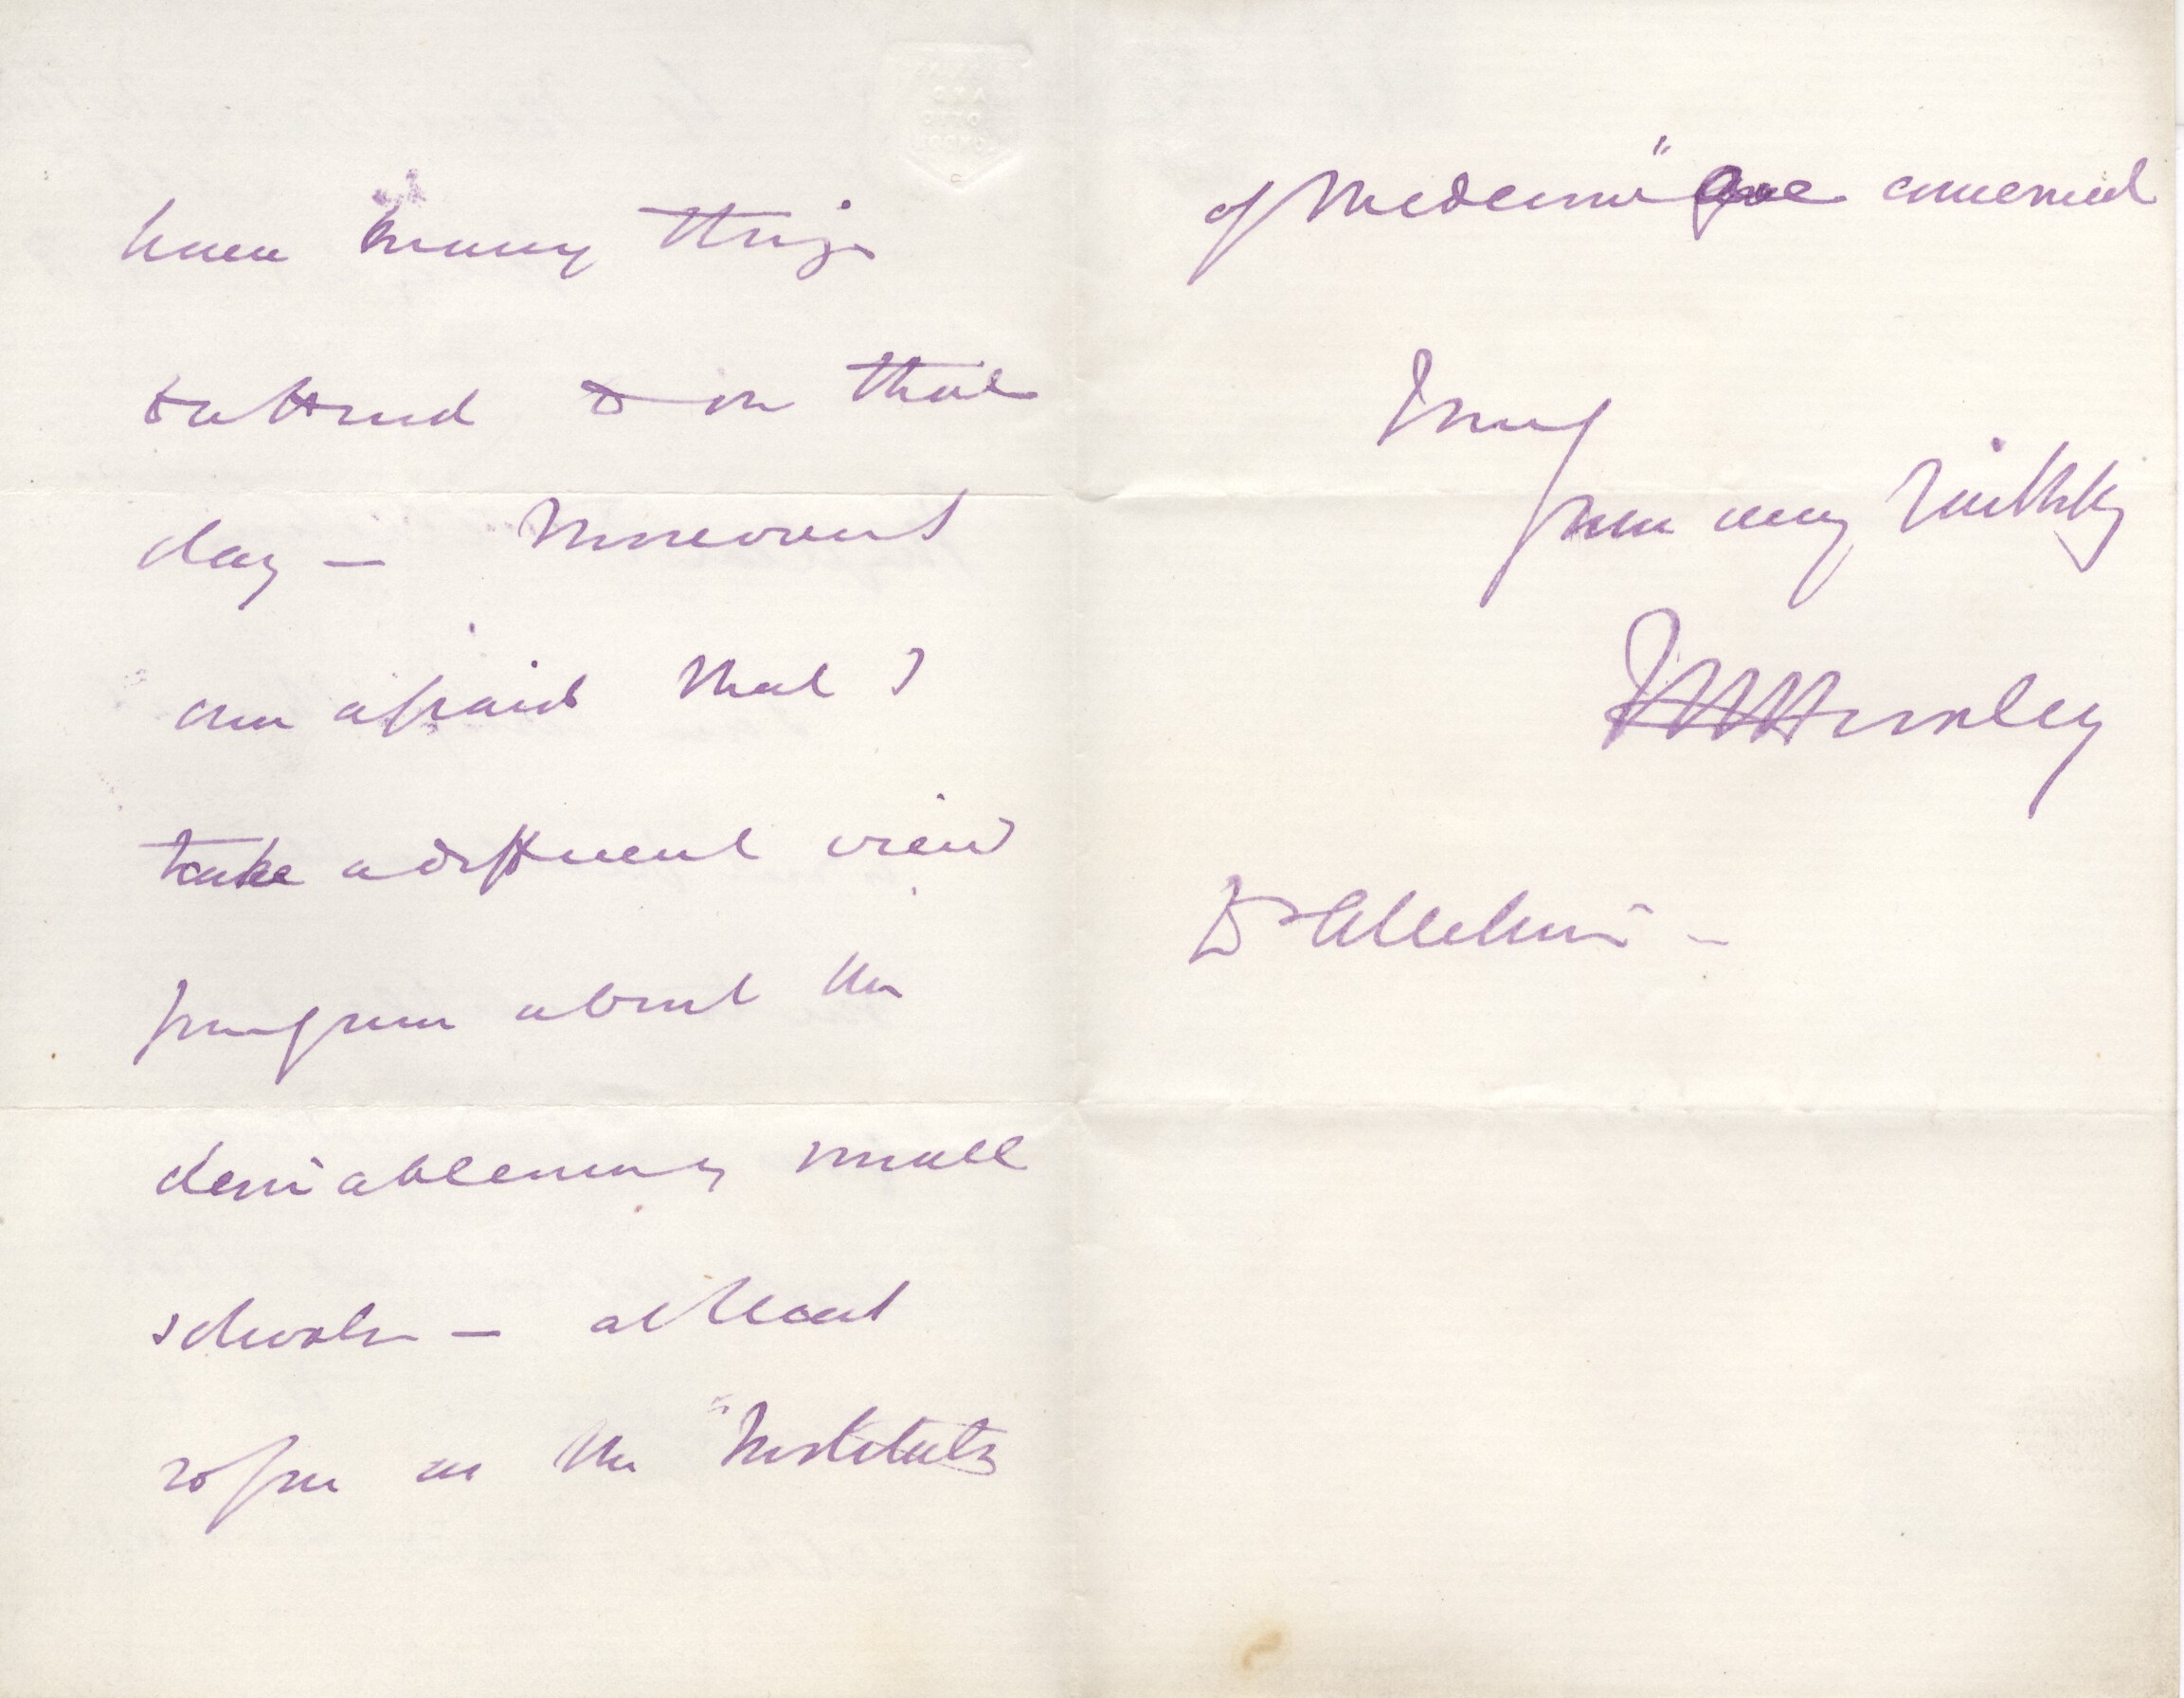 have many things
to attend to on that
day — Moreover I
am afraid that I
take a different view
from you about the
desirableness of small
schools — at least
so far as the "Institutes
of Medecine" are concerned
I am
yours very faithfully
T H Huxley
Dr Allchin —